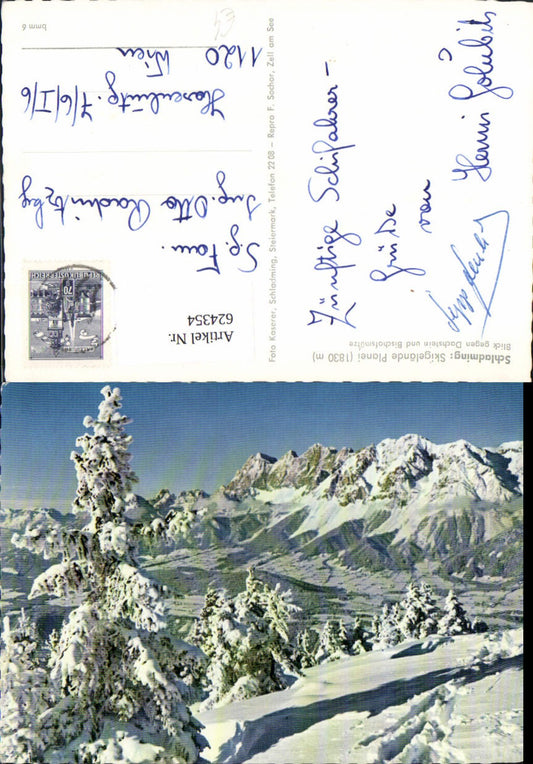 Schladming: Skigelände Planei (1830 m)
Blick gegen Dachstein und Bischofsmütze
Zünftige Schifahrer-
Grüße
von
Herrn Golubits
Foto Kaserer, Schladming, Steiermark, Telefon 22 08 - Repro F. Sochor, Zell am See
REPUBLIK ÖSTERREICH
70
Artikel Nr.
624354
S.g. Fam.
Ing. Otto
7/6/I/6
1120 Wien
bmm 6